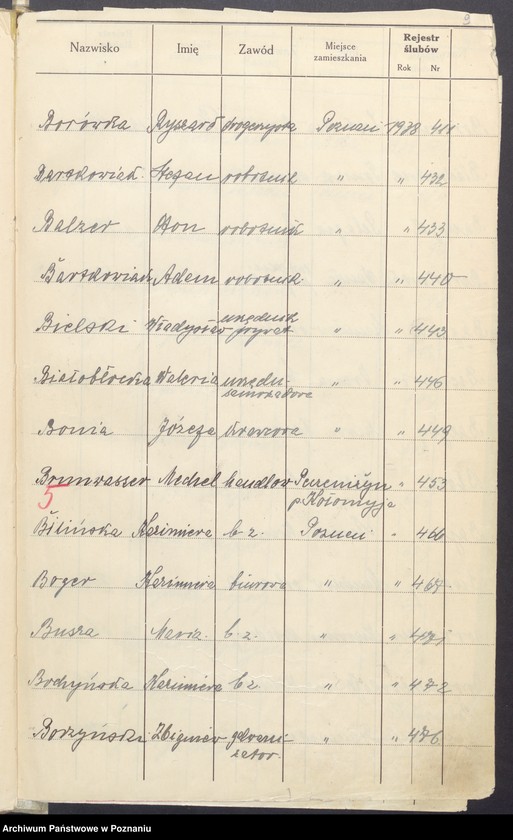 9
Nazwisko Imię Zawód Miejsce zamieszkania Rejestr ślubów
Rok Nr
Borówka Ryszard drogerzysta Poznań 1938 411
Bartkowiak Stefan robotnik " " 432
Balzer Oton robotnik " " 433
Bartkowiak Adam robotnik " " 440
Bielski Władysław urzędnik prywat " " 443
Białobłocka Waleria urzędn. samorządowa " " 446
Bonia Józefa krawcowa " " 449
Bonnwasser Mechel handlow " 453
p. Kołomyja
5
Bilińska Kazimiera b z. Poznań " 466
Boger Kazimiera biurowa " " 467
Busza Maria b. z. " " 471
Bochyńska Kazimiera b z. " " 472
Borzyński Zbigniew galwanizator. " " 476
Archiwum Państwowe w Poznaniu